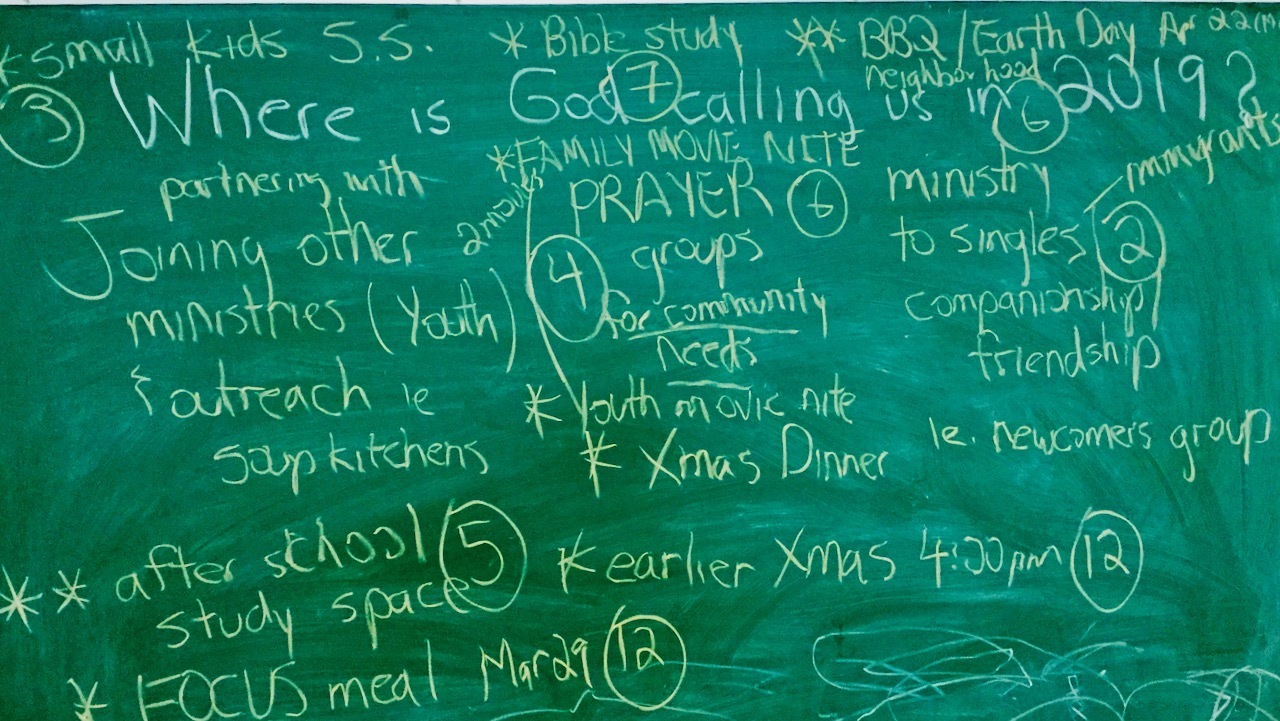 * small kids S.S. ③
* Bible study ⑦
** BBQ / Earth Day Apr 22
neighborhood ⑥
Where is God calling us in 2019?
partnering with
Joining other
ministries (Youth)
& outreach ie
soup kitchens
* FAMILY MOVIE NITE
2 movies ④
PRAYER ⑥
groups
for community
needs
* Youth movie nite
* Xmas Dinner
ministry
immigrants
to singles ②
companionship/
friendship
ie. newcomers group
** after school ⑤
study space
* earlier Xmas 4:00pm ⑫
* FOCUS meal Mar 29 ⑫